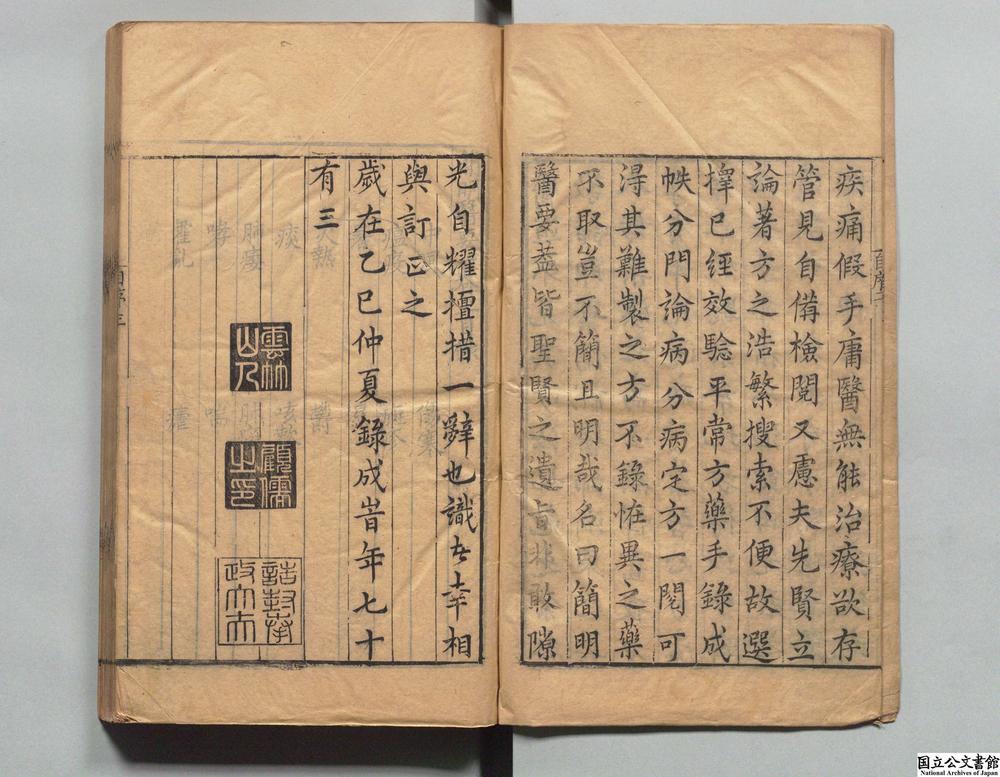 疾痛假手庸醫無能治療欲存
管見自備檢閱又慮夫先賢立
論著方之浩繁搜索不便故選
擇已經效驗平常方藥手錄成
帙分門論病分病定方一閱可
淂其難製之方不錄恠異之藥
不取豈不簡且明哉名曰簡明
醫要葢皆聖賢之遺旨非敢隙
自序二
光自耀擅措一辭也識者幸相
與訂正之
歲在乙巳仲夏錄成旹年七十
有三
雲林山人
顧儒之印
誥封奉政大夫
自序三
国立公文書館
National Archives of Japan